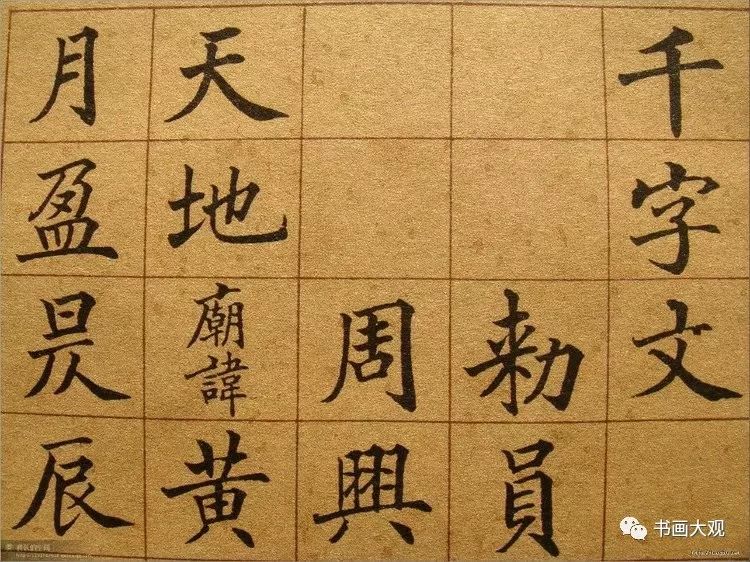 千字文
勑員
周興
天地廟諱黄
月盈昃辰
书画大观